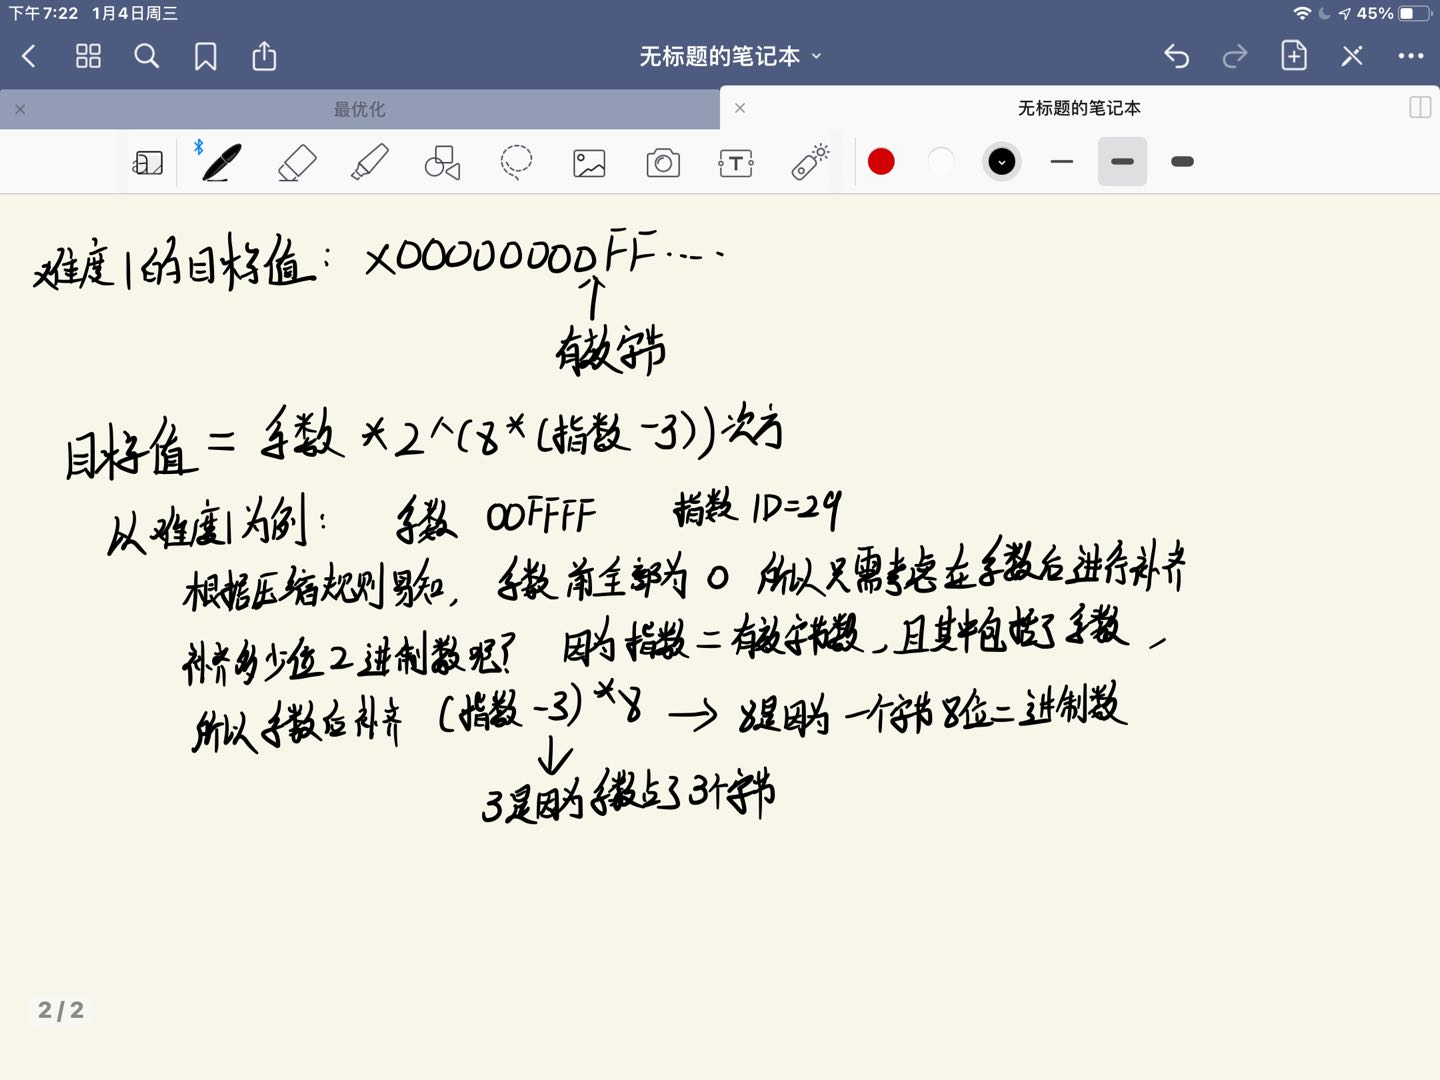 下午7:22 1月4日周三
45%
无标题的笔记本
最优化
无标题的笔记本
难度1的目标值: x00000000FF.....
↑
有效字节
目标值 = 系数 * 2^(8*(指数-3))次方
以难度1为例: 系数 00FFFF 指数 1D=29
根据压缩规则易知, 系数前全部为0 所以只需考虑在系数后进行补齐
补齐多少位2进制数呢? 因为指数=有效字节数, 且其中包括了系数,
所以系数后补齐 (指数-3)*8 → 8是因为一个字节8位二进制数
↓
3是因为系数占了3个字节
2/2